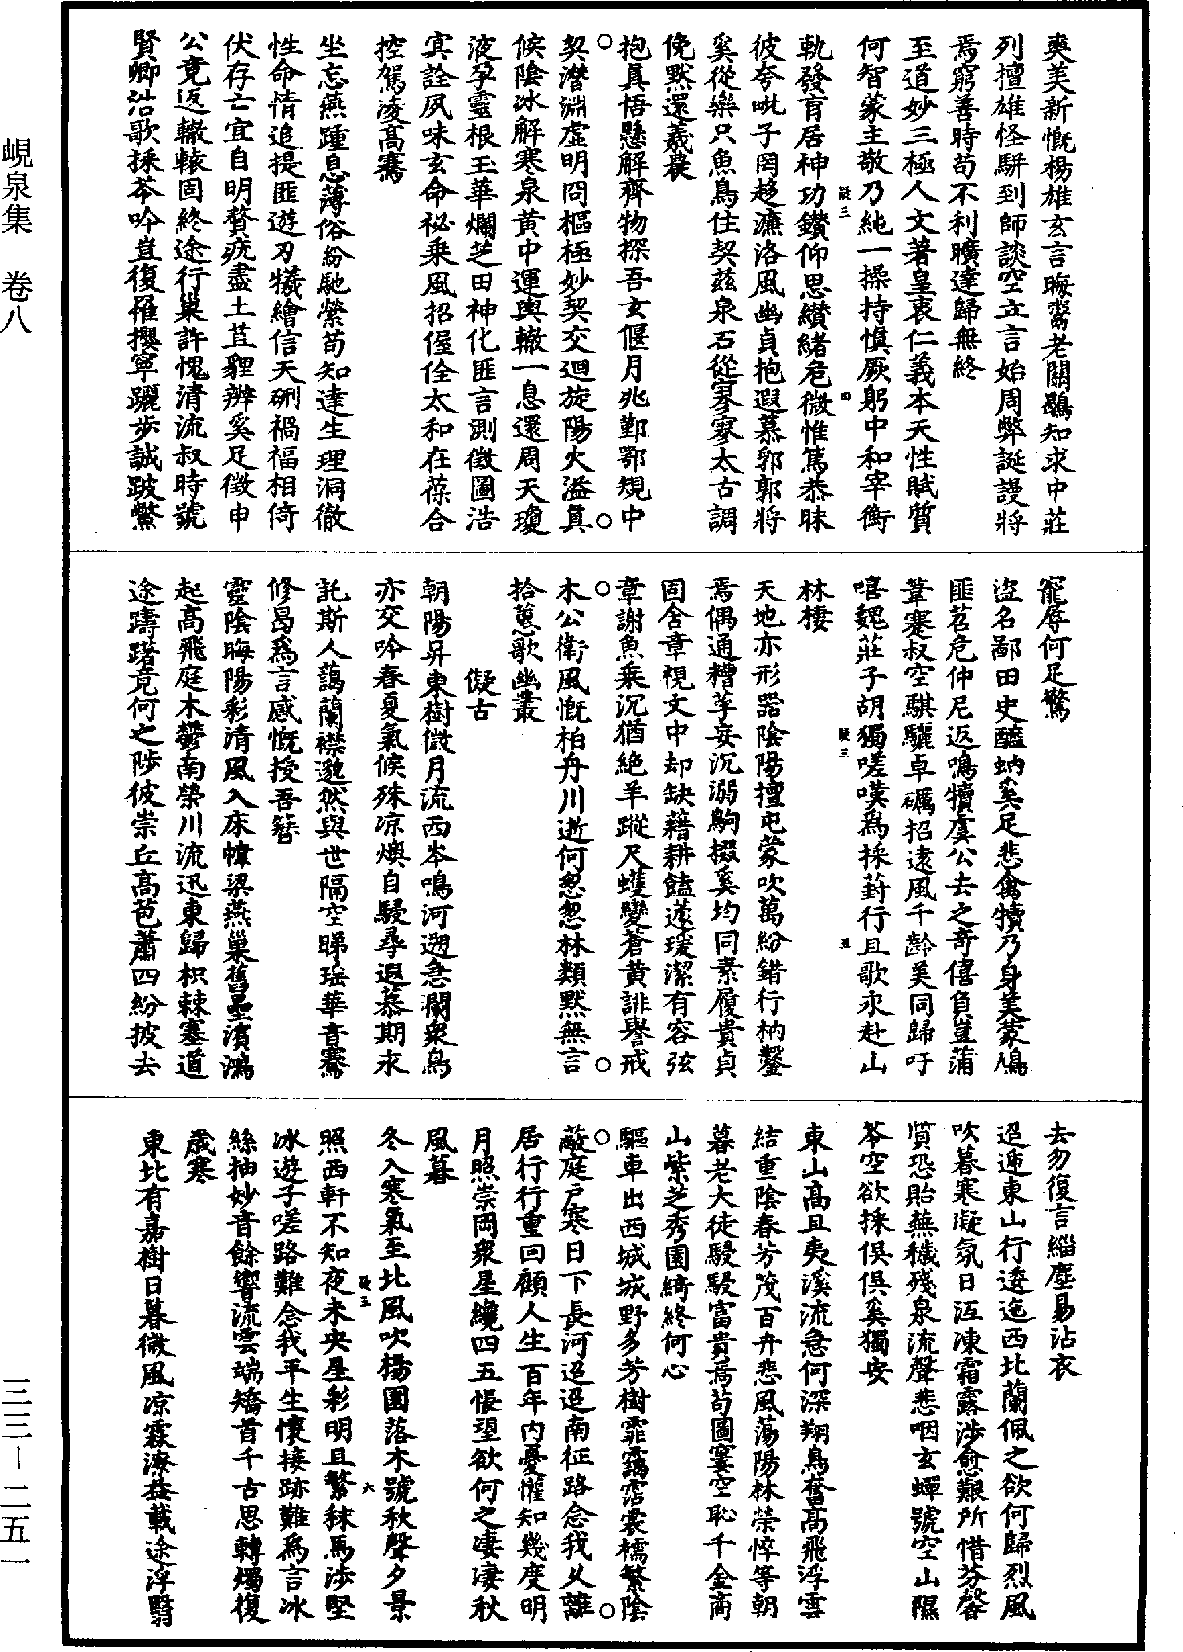 峴泉集　卷八
三三—二五一
爽美新慨楊雄玄言晦鬻老關鷃知求中莊
列擅雄怪駢到師談空立言始周弊誕謾將
焉窮善時苟不利曠達歸無終
至道妙三極人文著皇衷仁義本天性賦質
何智蒙主敬乃純一操持慎厥躬中和宰衡
疑三
四
軌發育居神功鑽仰思纘緒危微惟篤恭昧
彼夸毗子罔趍濂洛風幽貞抱遐慕郭郭將
奚從樂只魚鳥住契茲泉石從寥寥太古調
俛默還羲農
抱真悟懸解齊物探吾玄偃月兆鄞鄂規中
契潛淵虛明冏樞極妙契交迴旋陽火溢真
候陰冰解寒泉黃中運輿轍一息還周天瓊
液孕靈根玉華爛芝田神化匪言測徵圖浩
寘詮夙味玄命祕乘風招偓佺太和在葆合
控駕凌高騫
坐忘燕踵息薄俗紛馳縈苟知達生理洞徹
性命情追提匪遊刃犧繪信天硎禍福相倚
伏存亡宜自明贅疣盡土苴貍辨奚足徵申
公竟返轍轅固終途行巢許愧清流叔時號
賢卿沿歌採苓吟豈復罹攖寧躧步誠跛鱉
寵辱何足驚
盜名鄙田史醯蚋奚足悲禽犢乃身美蒙鳩
匪苕危仲尼返鳴犢虞公去之奇僖負豈蒲
葦蹇叔空騏驥卓礪招遠風千齡美同歸吁
嘻魏莊子胡獨嗟嘆為採葑行且歌永赴山
疑三
五
林棲
天地亦形器陰陽擅屯蒙吹萬紛錯行枘鑿
焉偶通糟莩妄沉溺駒掇奚均同素履貴貞
固含章視文中却缺藉耕饁蘧瑗潔有容弦
章謝魚乘沉猶絶羊蹤尺蠖變蒼黃誹譽戒
木公衛風慨柏舟川逝何怱怱林類默無言
拾蔥歌幽叢
儗古
朝陽昇東樹微月流西岑鳴河遡急瀾衆鳥
亦交吟春夏氣候殊凉燠自駸尋遐慕期永
託斯人蘭襟邈然與世隔空睇瑤華音騫
修曷為言感慨授吾簪
靈陰晦陽彩清風入床幃梁燕巢舊壘濱鴻
起高飛庭木鬱南榮川流迅東歸枳棘塞道
途躊躇竟何之陟彼崇丘高芭蕭四紛披去
去勿復言緇塵易沾衣
迢遞東山行逶迤西北蘭佩之欲何歸烈風
吹暮寒凝氛日沍凍霜露涉愈艱所惜芬馨
質恐貽蕪穢殘泉流聲悲咽玄蟬號空山隰
苓空欲採俁俁奚獨安
東山高且夷溪流急何深翔鳥奮高飛浮雲
結重陰春芳茂百卉悲風蕩陽林榮悴等朝
暮老大徒駸駸富貴焉苟圖簍空恥千金商
山紫芝秀園綺終何心
驅車出西城城野多芳樹霏靄霑裳襦繁陰
蔽庭戶寒日下長河迢迢南征路念我久離
居行行重回顧人生百年內憂懼知幾度明
月照崇岡衆星纔四五悵望欲何之凄凄秋
風暮
冬入寒氣至北風吹楊園落木號秋聲夕景
照西軒不知夜未央星彩明且繁秣馬涉堅
疑三
六
冰遊子嗟路難念我平生懷接跡難為言冰
絲抽妙音餘響流雲端矯首千古思轉燭復
歲寒
東北有嘉樹日暮微風凉霖潦益載途浮翳